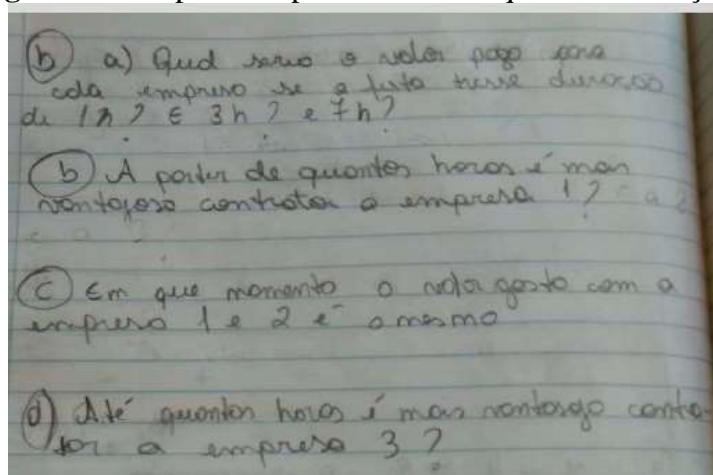 b) a) Qual seria o valor pago para
cada empresa se a festa tivesse duração
de 1h? E 3h? e 7h?
b) A partir de quantas horas é mais
vantajoso contratar a empresa 1?
c) Em que momento o valor gasto com a
empresa 1 e 2 é o mesmo
d) Até quantas horas é mais vantajoso contra-
tar a empresa 3?